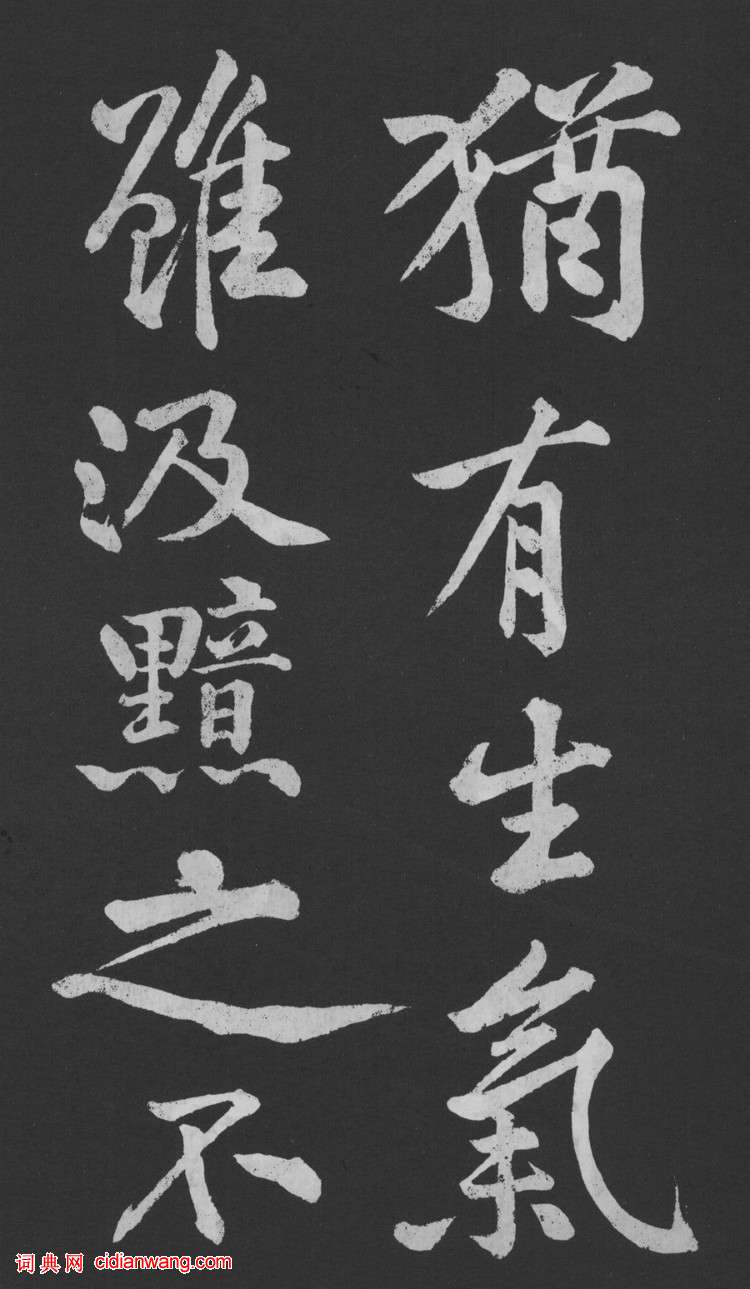 猶有生氣
雖汲黯之不
词典网 cidianwang.com